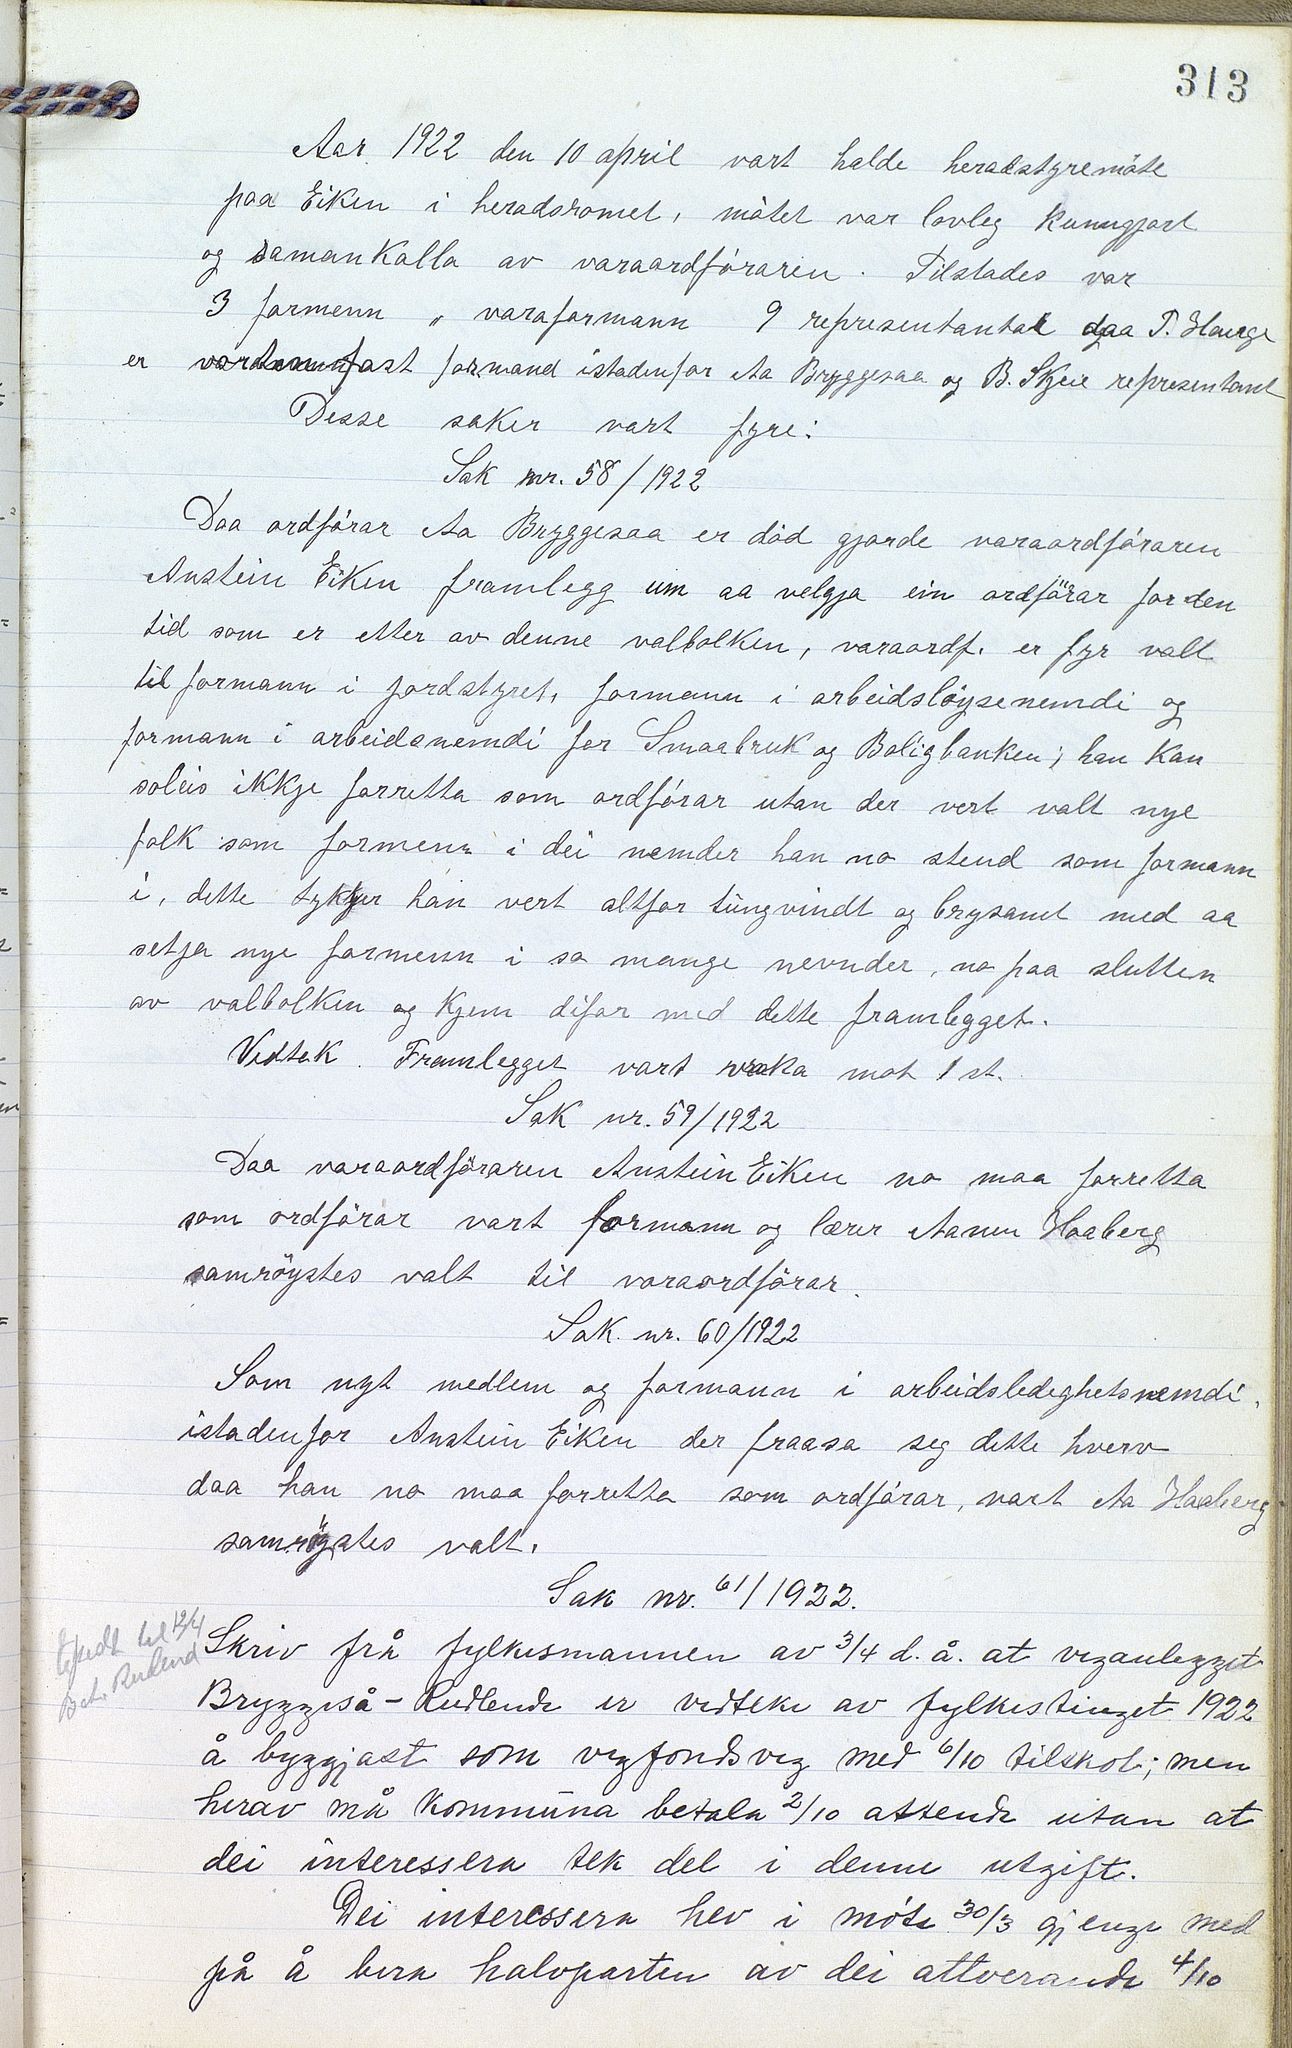 313
Aar 1922 den 10 april vart halde heradstyremöte
paa Eiken i heradsromet, mötet var lovleg kunngjort
og samankalla av varaordföraren. Tilstades var
3 formenn " varaformann 9 representantar daa T. Hauge
er fast formand istadenfor Aa Bryggesaa og B. Skeie representant
Desse saker vart fyre:
Sak nr. 58/1922
Daa ordförar Aa Bryggesaa er död gjorde varaordföraren
Anstein Eiken framlegg um aa velgja ein ordförar for den
tid som er etter av denne valbolken, varaordf. er fyr valt
til formann i jordstyret, formann i arbeidslöysenemdi og
formann i arbeidsnemdi for Smaabruk og Boligbanken; han kan
soleis ikkje forretta som ordförar utan der vert valt nye
folk som formenn i dei nemder han no stend som formann
i, dette tykkjer han vert altfor tungvindt og brysamt med aa
setja nye formenn i so mange nevnder, no paa slutten
av valbolken og kjem difor med dette framlegget.
Vedtak. Framlegget vart vraka mot 1 st.
Sak nr. 59/1922
Daa varaordföraren Anstein Eiken no maa forretta
som ordförar vart formann og lærer Aanen Haaberg
samröystes valt til varaordförar.
Sak. nr. 60/1922
Som nyt medlem og formann i arbeidsledighetsnemdi,
istadenfor Anstein Eiken der fraasa seg dette hverv
daa han no maa forretta som ordförar, vart Aa Haaberg
samröystes valt.
Sak nr. 61/1922.
til 12/4
Skriv frå fylkesmannen av 3/4 d. å. at veganlegget
Bryggeså - Redlende er vedteke av fylkestinget 1922
å byggjast som vegfondsveg med 6/10 tilskot; men
herav må kommuna betala 2/10 attende utan at
dei interessera tek del i denne utgift.
Dei interessera hev i möte 30/3 gjenge med
på å bera halvparten av dei attverande 4/10